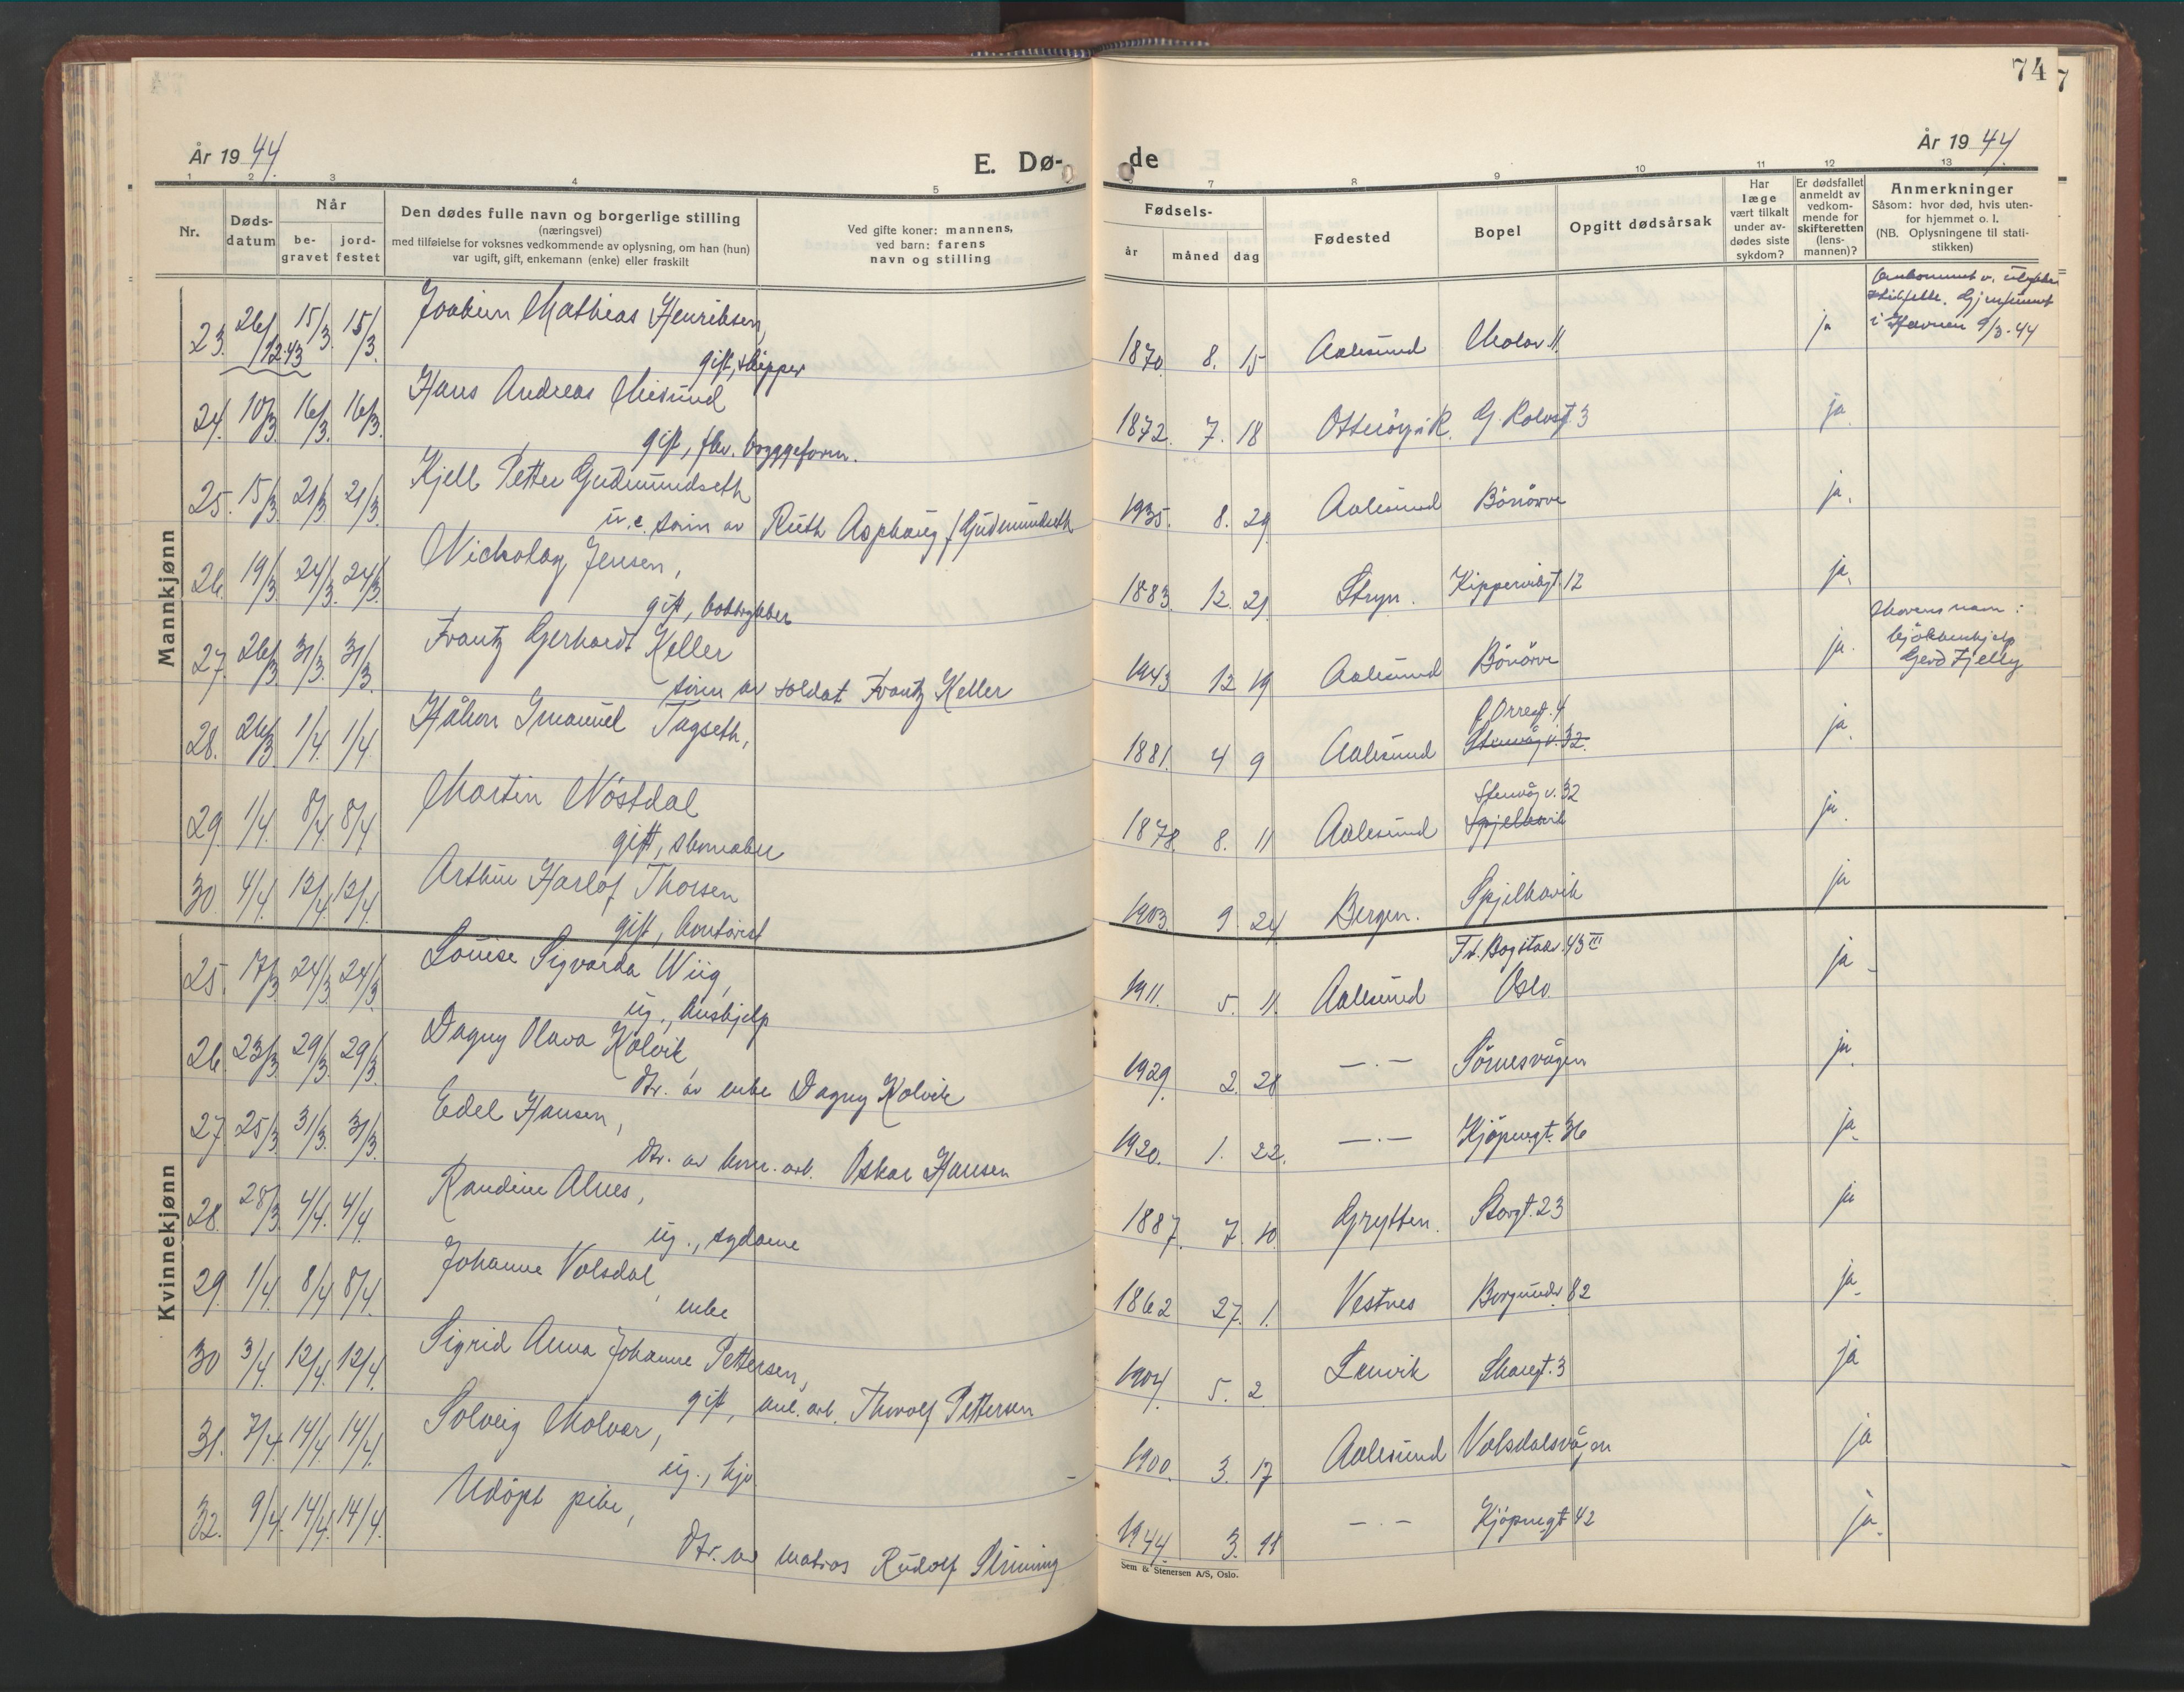 74
År 1944.
E. Dø-
de
År 1944.
1 2 3 4 5 6 7 8 9 10 11 12 13
Nr.
Døds-
datum
Når
be-
gravet
jord-
festet
Den dødes fulle navn og borgerlige stilling
(næringsvei)
med tilføielse for voksnes vedkommende av oplysning, om han (hun)
var ugift, gift, enkemann (enke) eller fraskilt
Ved gifte koner: mannens,
ved barn: farens
navn og stilling
Fødsels-
år måned dag
Fødested
Bopel
Opgitt dødsårsak
Har
læge
vært tilkalt
under av-
dødes siste
sykdom?
Er dødsfallet
anmeldt av
vedkom-
mende for
skifteretten
(lens-
mannen)?
Anmerkninger
Såsom: hvor død, hvis uten-
for hjemmet o. l.
(NB. Oplysningene til stati-
stikken)
Mannkjønn
23. 26/12.43 15/3. 15/3. Joakim Mathias Henriksen,
gift, skipper
1870. 8. 15 Aalesund Molov. 11. ja
Omkommet v.
Gjenfunnet
i Havnen 9/3-44
24. 10/3. 16/3. 16/3. Hans Andreas Misund
gift, fhv. bryggeform.
1872. 7. 18 Otterøy i R. G. Rolvsgt. 3 ja.
25. 15/3. 21/3. 21/3. Kjell Petter Gudmundseth
u.e. sønn av Ruth Asphaug f. Gudmundseth
1935. 8. 29 Aalesund ja.
26. 19/3. 24/3. 24/3. Nickolay Jensen,
gift, boktrykker
1883. 12. 21 Stryn. Kippervikgt. 12 ja.
27. 26/3. 31/3. 31/3. Frantz Gerhardt Keller
sønn av soldat Frantz Keller
1943 12 19 Aalesund ja.
Morens navn:
kjøkkenhjelp
Gerd Fjelly
28. 26/3. 1/4. 1/4. Håkon Imanuel Tagseth,
1881. 4 9 Aalesund Stenvåg v. 32. ja.
29. 1/4. 8/4. 8/4 Martin Nöstdal
gift, skomaker
1878. 8. 11 Aalesund Stenvåg v. 32 Spjelkavik ja.
30. 4/4. 12/4. 12/4. Arthur Harlof Thorsen
gift, kontorist
1903. 9 24 Bergen. Spjelkavik ja
Kvinnekjønn
25. 17/3. 24/3. 24/3. Louise Sigvarda Wiig,
ug., hushjelp
1911. 5. 11. Aalesund Th. Bogstadv. 43 III
Oslo. ja
26. 23/3. 29/3. 29/3. Dagny Olava Kolvik,
dtr. av enke Dagny Kolvik
1929. 2. 28 —.— Sörnesvågen ja.
27. 25/3. 31/3. 31/3. Edel Hansen,
dtr. av kom. arb. Oskar Hansen
1920. 1. 22. —.— Kjöpmgt. 36 ja.
28. 28/3. 4/4. 4/4 Randine Alnes,
ug., sydame
1887. 7. 10. Grytten. Storgt. 23 ja
29. 1/4. 8/4 8/4. Johanne Volsdal,
enke
1862 27. 1. Vestnes Borgundv. 82 ja.
30 3/4. 12/4. 12/4. Sigrid Anna Johanne Pettersen,
gift, arb. Thorolf Pettersen
1904. 5. 2 Lenvik Skaugt. 3 ja
31. 7/4. 14/4. 14/4. Solveig Molvær,
ug.,
1900. 3. 17 Aalesund Volsdalsvågen ja
32. 9/4. 14/4. 14/4. Udöpt pike,
dtr. av matros Rudolf
1944. 3. 11 —.— Kjöpmgt 42 ja.
Sem & Stenersen A/S, Oslo.